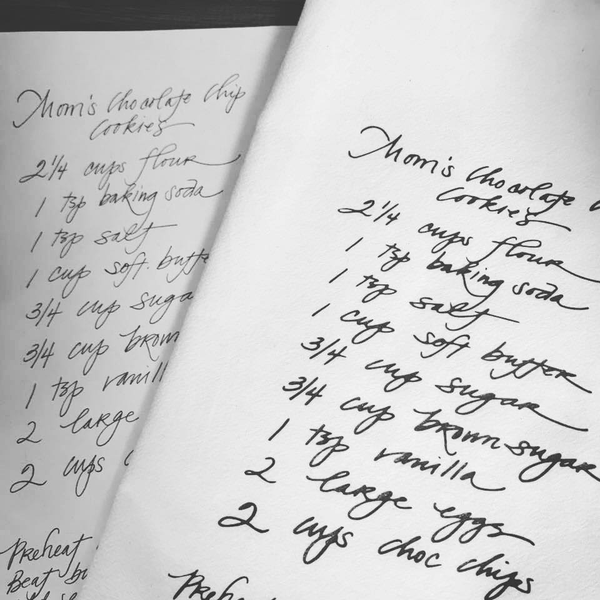 Mom's Chocolate Chip
Cookies
2 1/4 cups flour
1 tsp baking soda
1 tsp salt
1 cup soft butte
3/4 cup suga
3/4 cup brown
1 tsp vanill
2 large
2 cups
Preheat
Beat bu
Mom's Chocolate
Cookies
2 1/4 cups flour
1 tsp baking soda
1 tsp salt
1 cup soft butter
3/4 cup sugar
3/4 cup brown sugar
1 tsp vanilla
2 large eggs
2 cups choc chips
Prehea